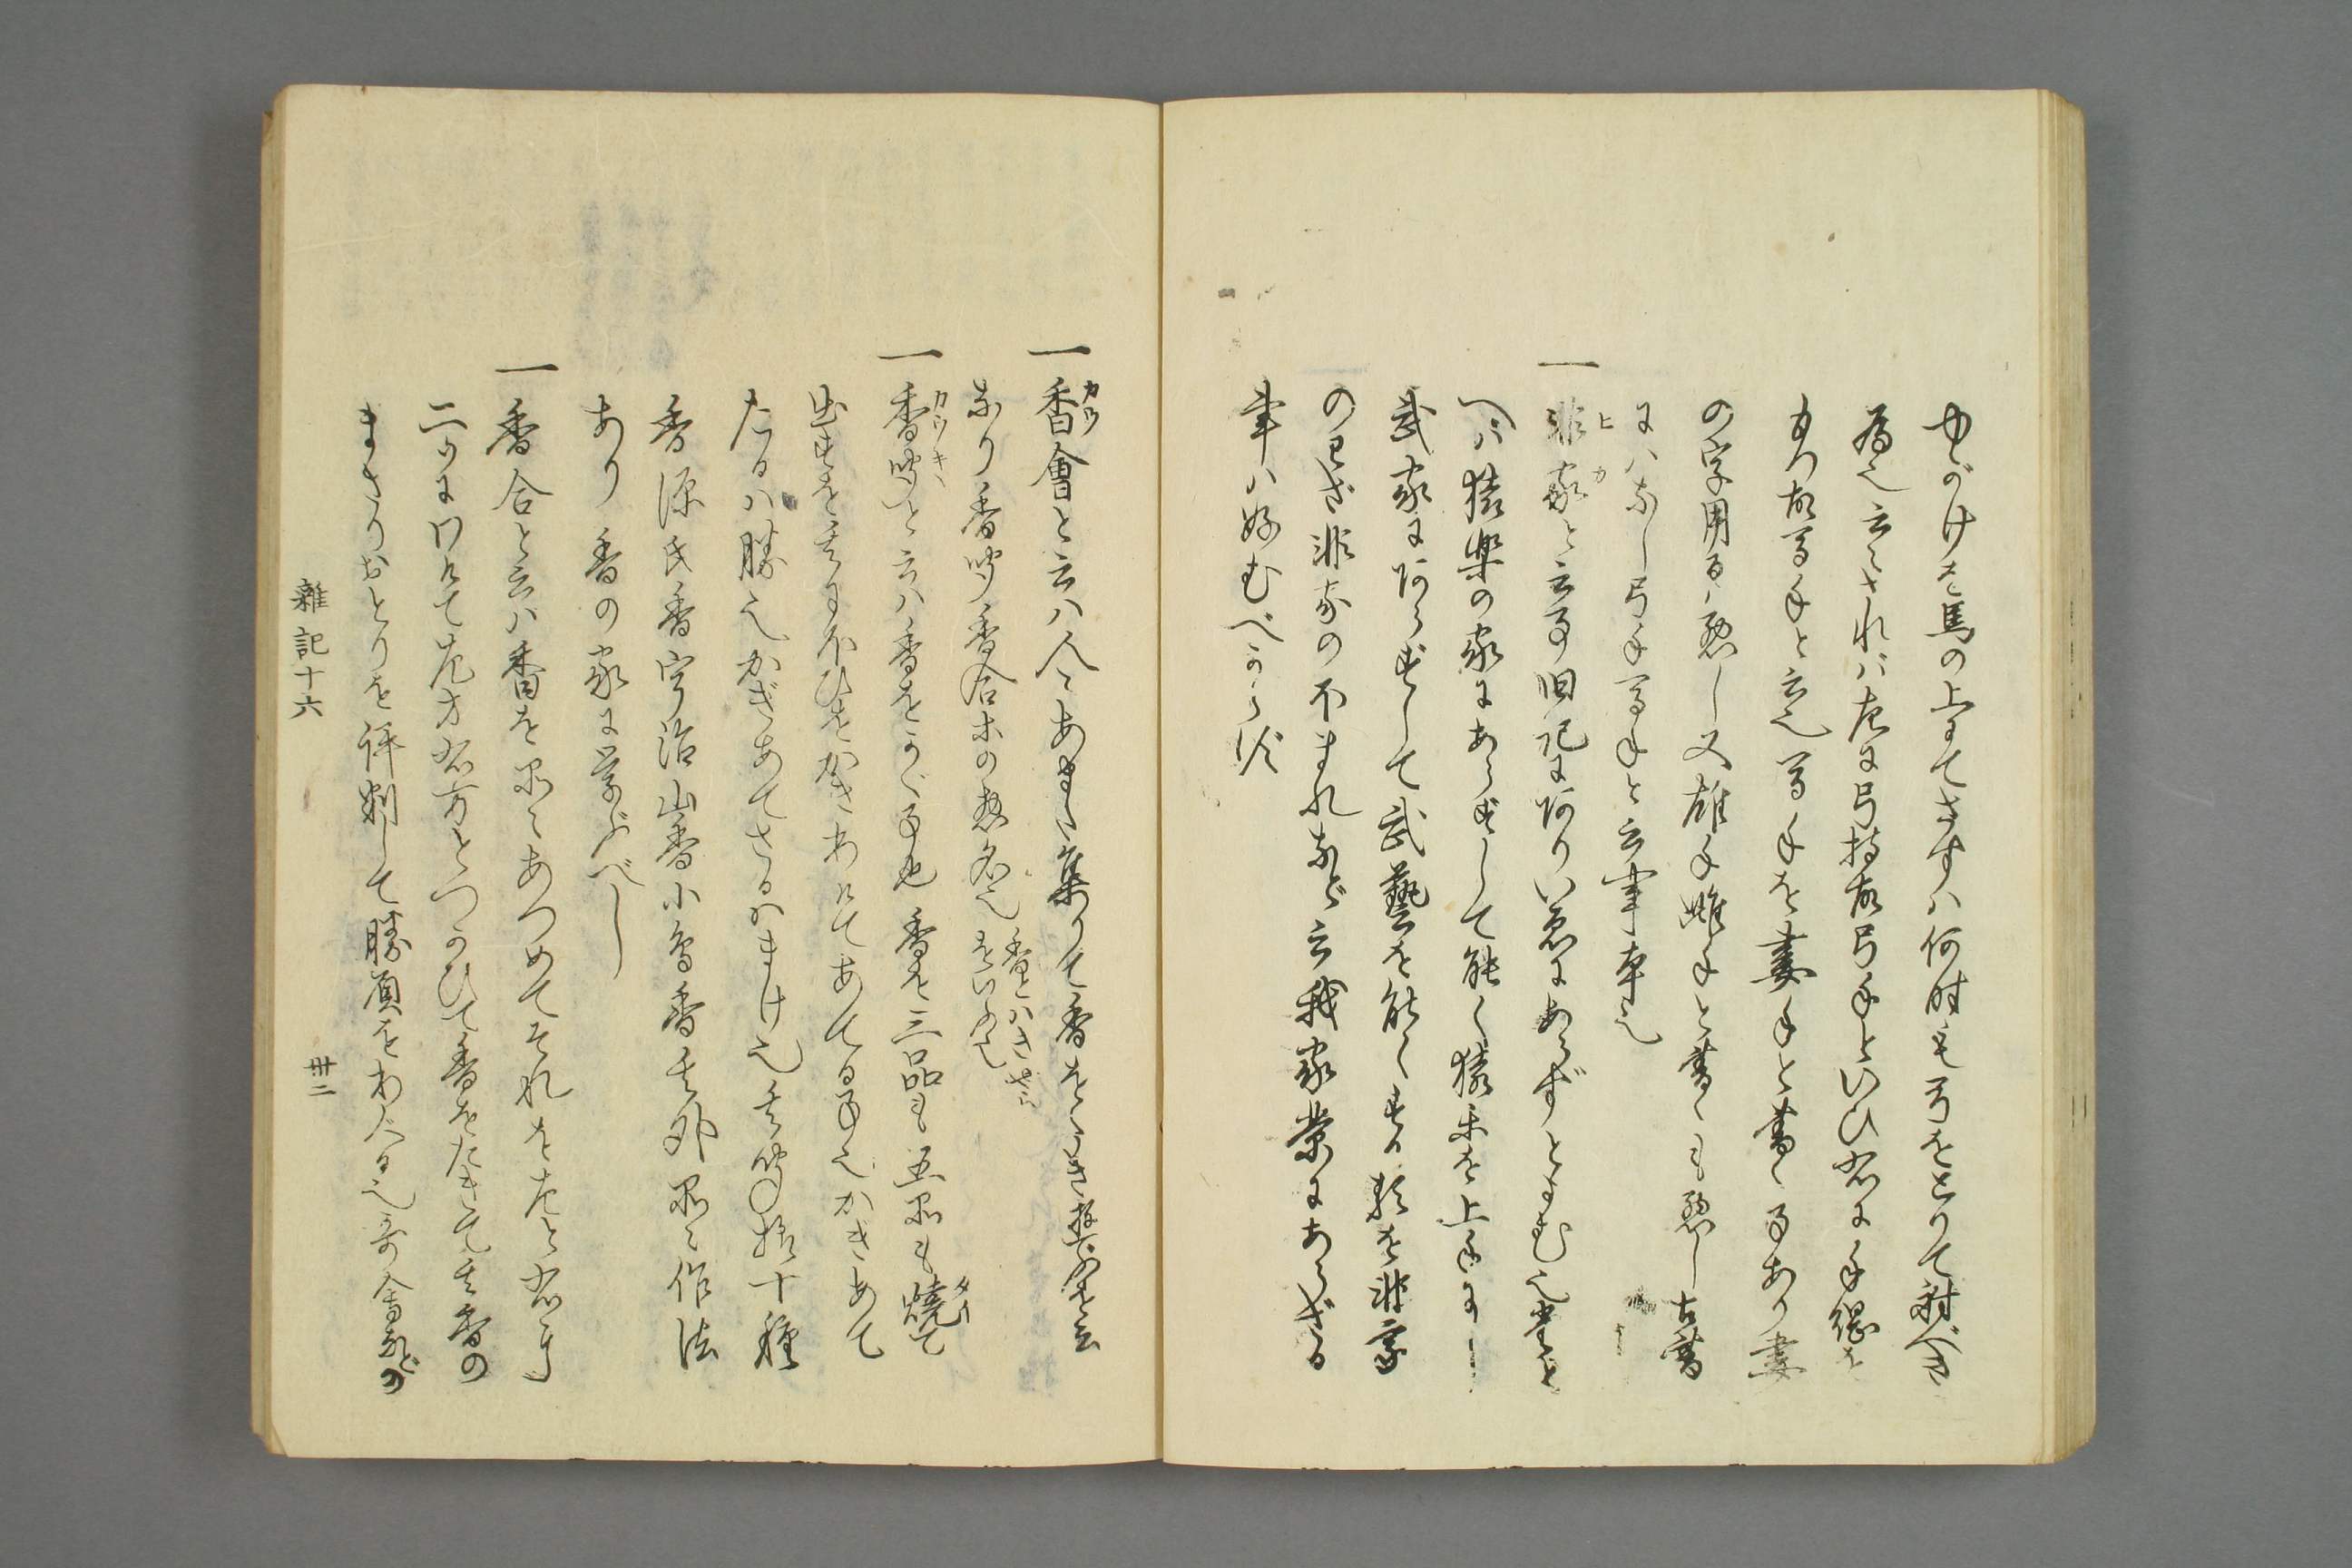 ゆがけを馬の上にてさすハ何時も弓をとりて射べき
為也云々されバ左に弓持故弓手といひ右に手綱を
もつ故馬手と云也馬手を妻手と書く事あり妻
の字用るハ悪し又雄手雌手と書くも悪し古書
にハなし弓手馬手と云事本也
一非家と云事旧記にありいゑにあらずとよむ也たと
ヒカ
へバ猿楽の家にあらずして能く猿楽を上手にし
武家にあらずして武藝を能くする類を非家
のわざ非家の不まれなど云我家業にあらざる
事ハ好むべからず
一香會と云ハ人々あまた集りて香をきゝ遊ぶを云
カウ
なり香聞香合ホの惣名也
香をハきゝ
をいふ也
一香聞と云ハ香をかぐ事也香を三品も五品も焼て
カウキヽ
タイ
出すを其に匂ひをかきわけてあてる事也かきあて
たるハ勝也かぎあてざるハまけ也其聞様十種
香源氏香宇治山香小鳥香其外品々作法
あり香の家に学ぶべし
一香合と云ハ香を品々あつめてそれを左と右と
二つにわけて左方右方とつがひて香をたきて其香の
まさりおとりを評判して勝負をわくる也哥合などの
雑記十六
卅二